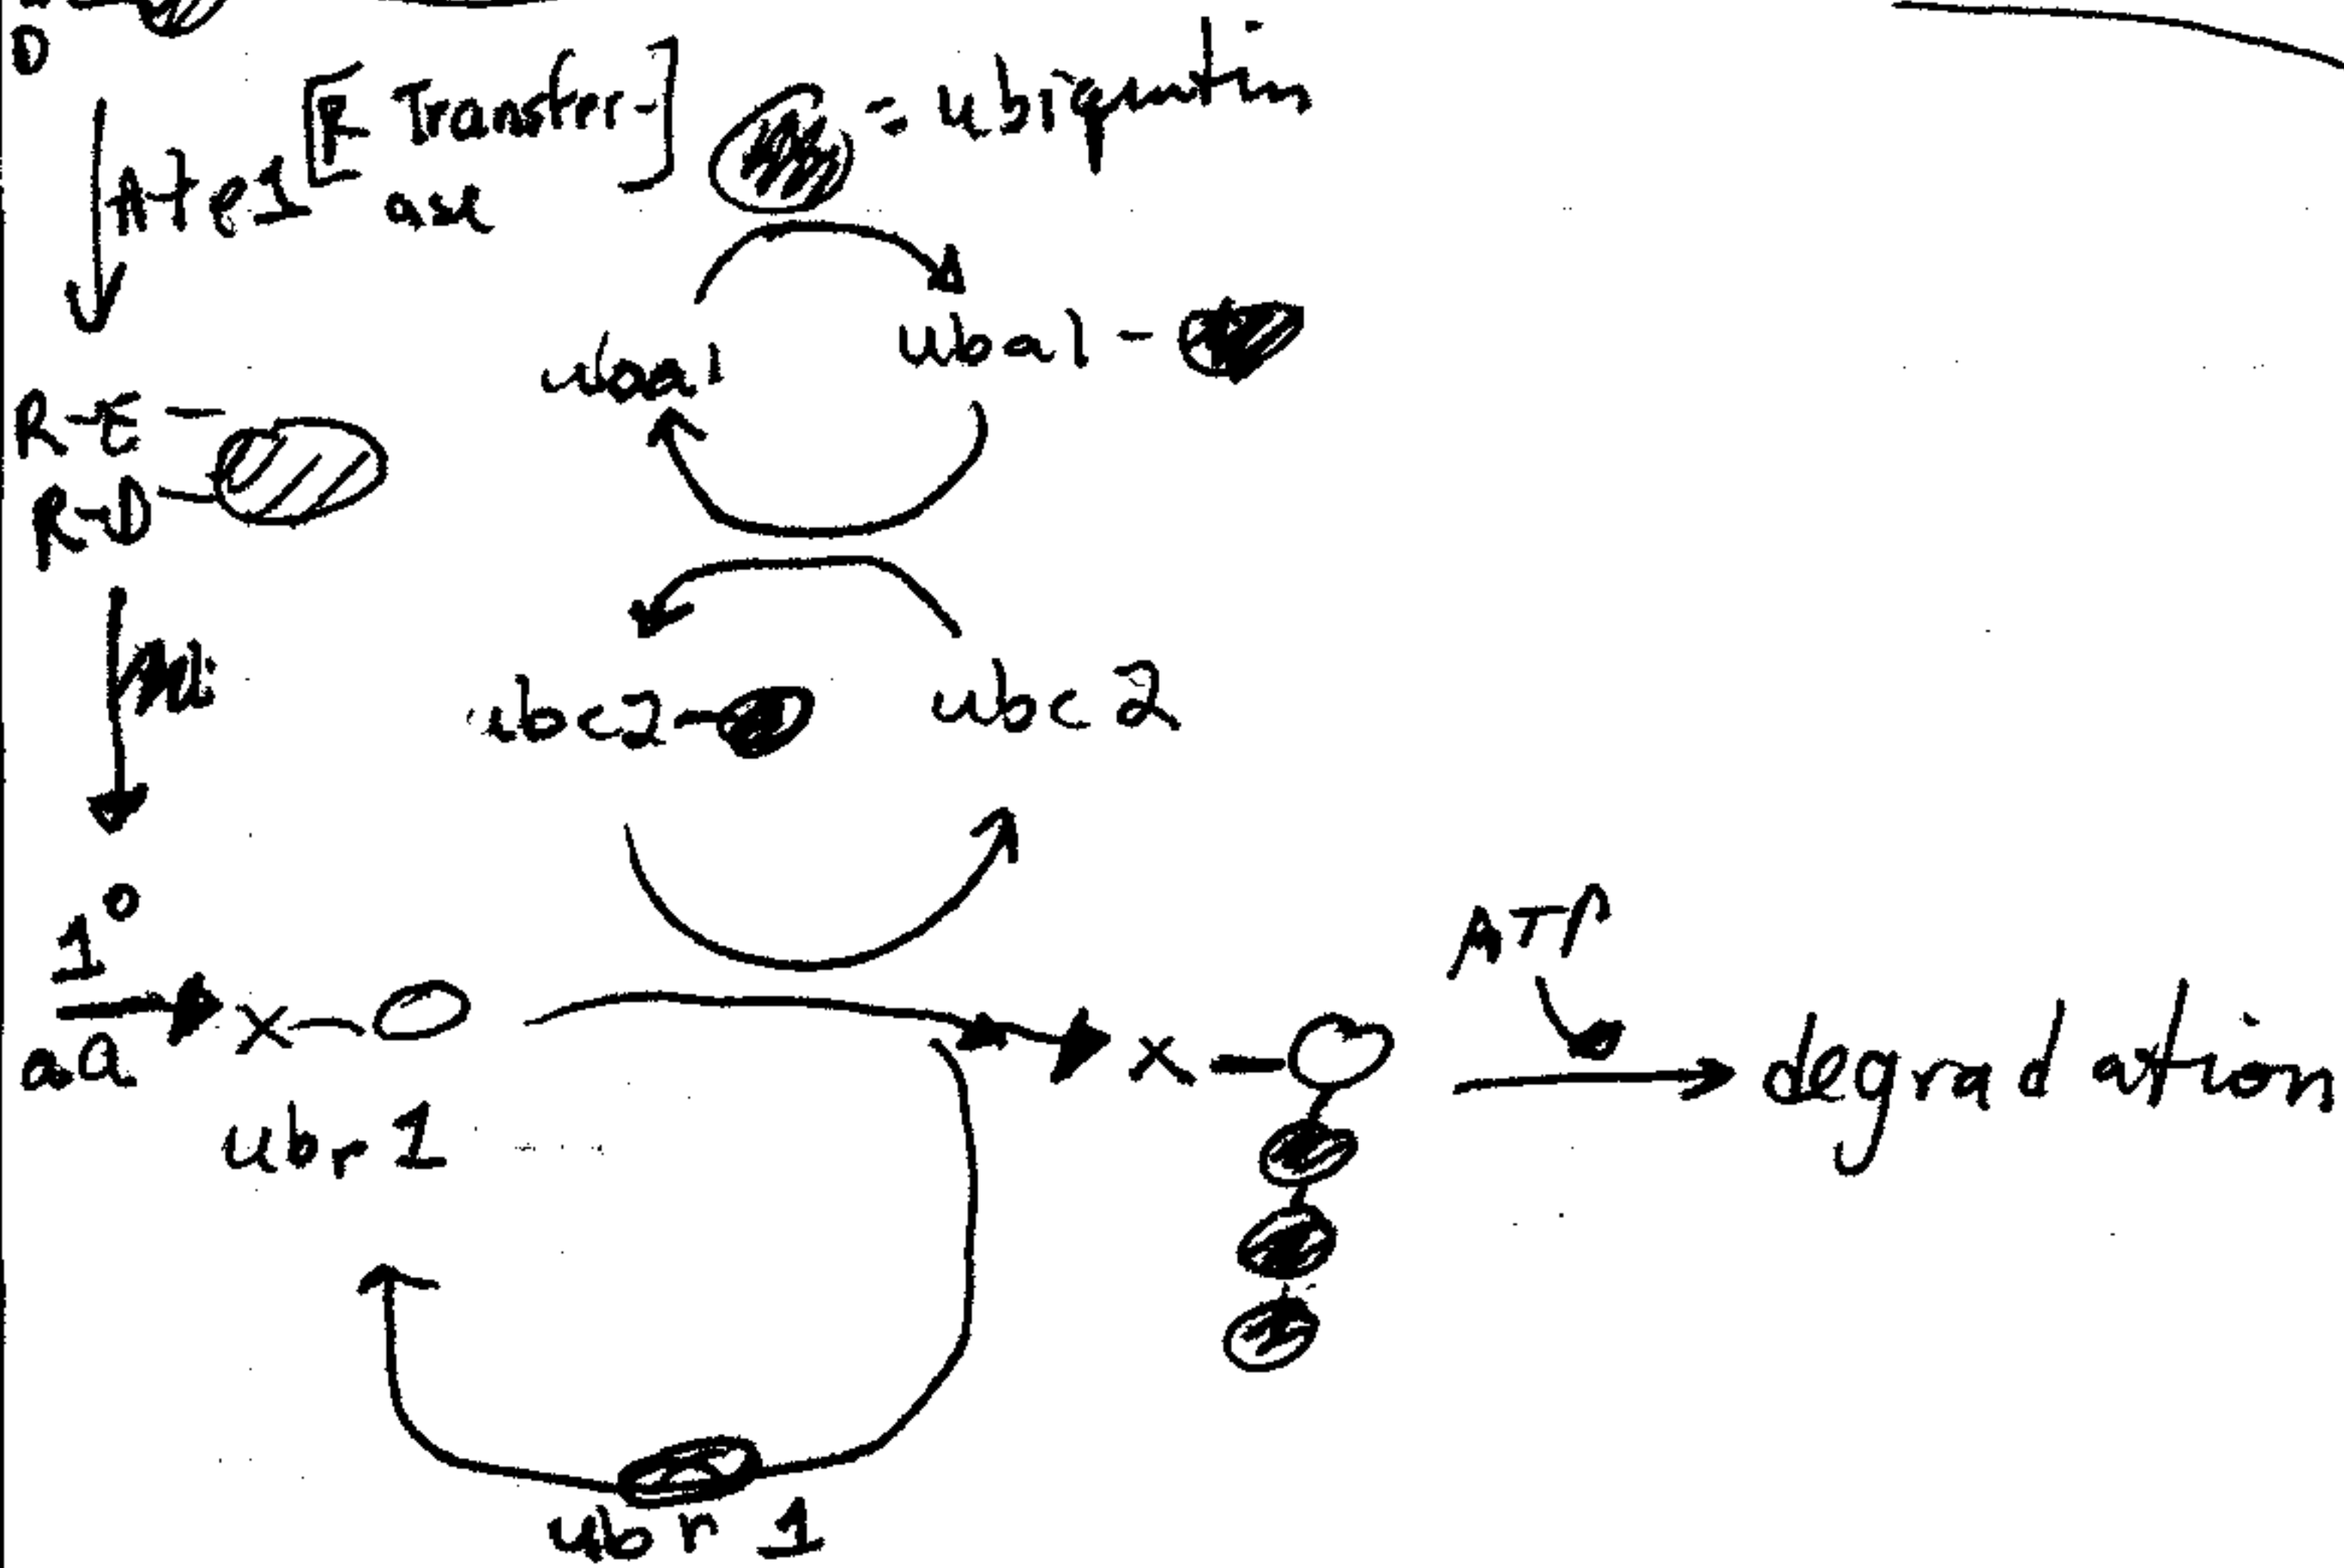 D
Ate1 [R Transfer-
ase]
= ubiquitin
uba1
uba1 -
R-E -
R-D
ubc2 -
ubc2
1°
aa
x-
ubr 1
x -
ATP
degradation
ubr 1